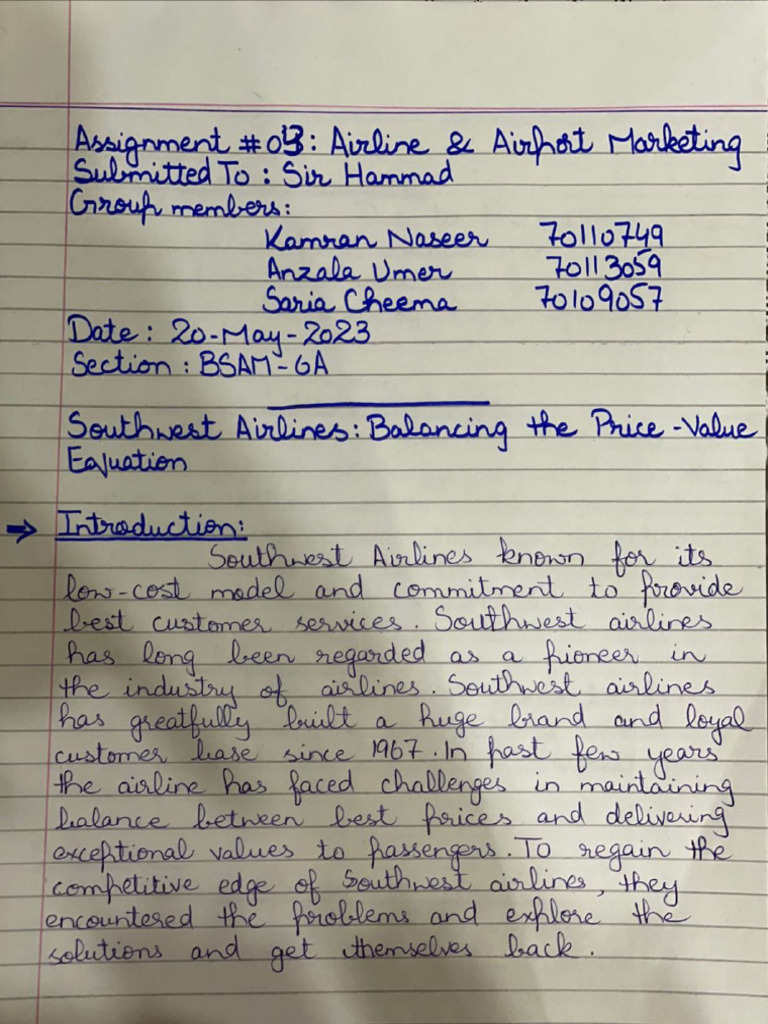 Assignment #03: Airline & Airport Marketing
Submitted To : Sir Hammad
Group members:
Kamran Naseer 70110749
Anzala Umer 70113059
Saria Cheema 70109057
Date : 20-May-2023
Section : BSAM-6A
Southwest Airlines: Balancing the Price-Value
Equation
→ Introduction:
Southwest Airlines known for its
low-cost model and commitment to provide
best customer services. Southwest airlines
has long been regarded as a pioneer in
the industry of airlines. Southwest airlines
has greatfully built a huge brand and loyal
customer base since 1967. In past few years
the airline has faced challenges in maintaining
balance between best prices and delivering
exceptional values to passengers. To regain the
competitive edge of Southwest airlines, they
encountered the problems and explore the
solutions and get themselves back.